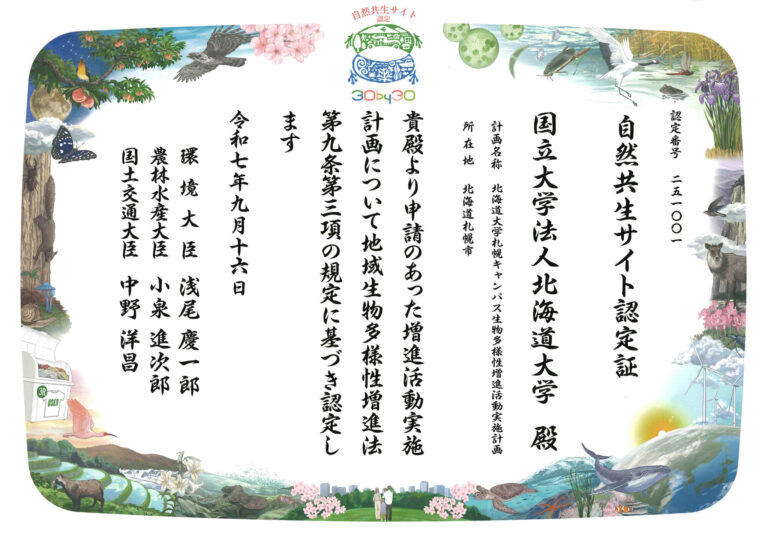 自然共生サイト
認定
30by30
認定番号 二五一〇〇一
自然共生サイト認定証
国立大学法人北海道大学 殿
計画名称 北海道大学札幌キャンパス生物多様性増進活動実施計画
所在地 北海道札幌市
貴殿より申請のあった増進活動実施
計画について地域生物多様性増進法
第九条第三項の規定に基づき認定し
ます
令和七年九月十六日
環境大臣 浅尾 慶一郎
農林水産大臣 小泉 進次郎
国土交通大臣 中野 洋昌
USED